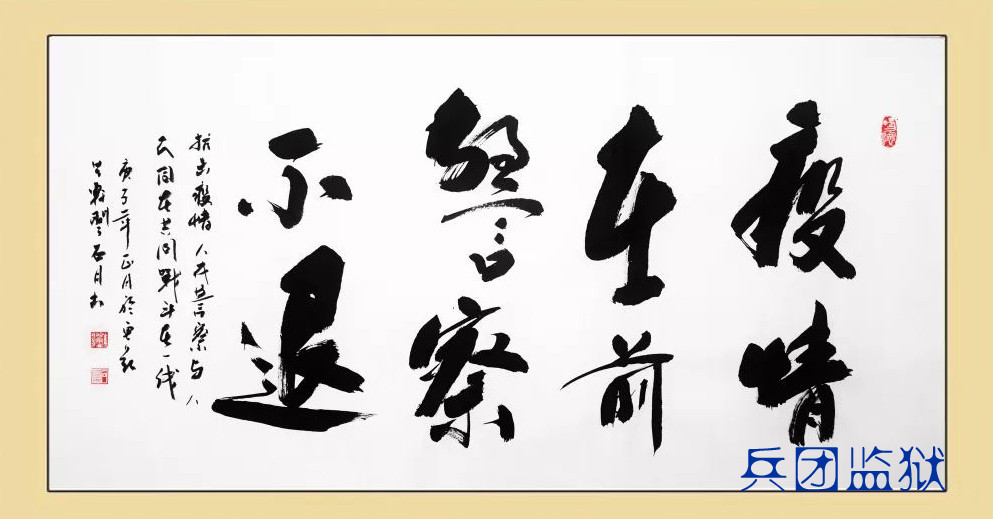 疫情
在前
警察
不退
抗击疫情人民警察与人
民同在共同战斗在一线
庚子年正月於
兵团监狱